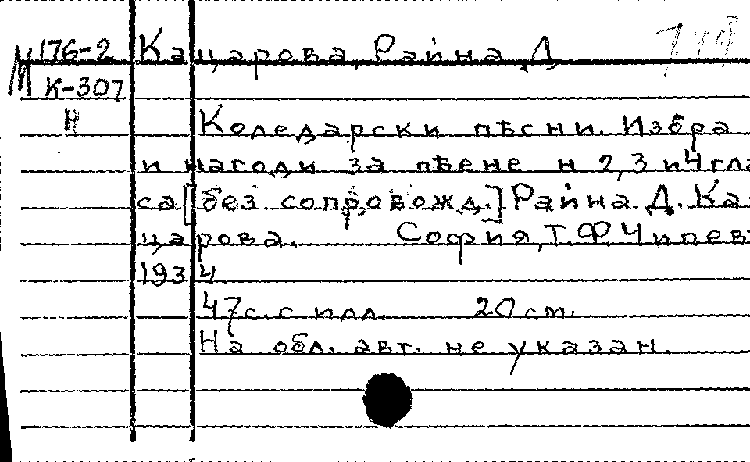 М 176-2 Кацарова, Райна Д
К-307
Н Коледарски пѣсни. Избра
и нагоди за пѣене н 2, 3 и 4 гла
са [без сопровожд.] Райна Д. Ка-
царова. София, Т. Ф. Чипев
1934
47 с. с илл. 20 см.
На обл. авт. не указан.